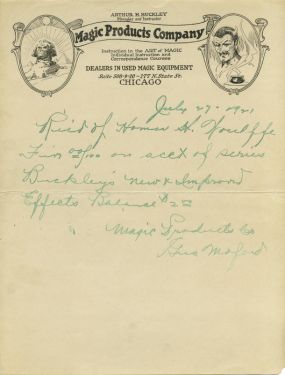 ARTHUR H. BUCKLEY
Manager and Instructor
Magic Products Company
Instruction in the ART of MAGIC
Individual Instruction and
Correspondence Courses
DEALERS IN USED MAGIC EQUIPMENT
Suite 508-9-10 — 177 N. State St.
CHICAGO
July 27 - 1921
Rec'd of Homer H. Woulffe
Five 00/100 on acct of series
Buckley's New & Improved
Effects Balance $2
Magic Products Co